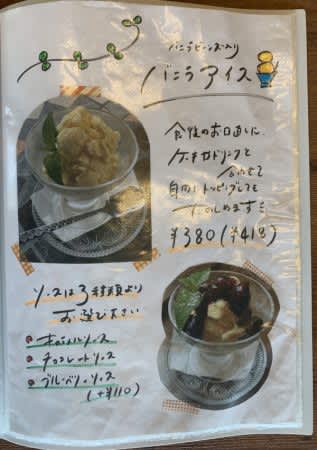 バニラビーンズ入り
バニラアイス
食後のお口直しに、
ケーキやドリンクと
合わせて
自由にトッピングしても
たのしめます♪
¥380(¥418)
ソースは3種類より
お選び下さい
キャラメルソース
チョコレートソース
ブルーベリーソース
(+¥110)